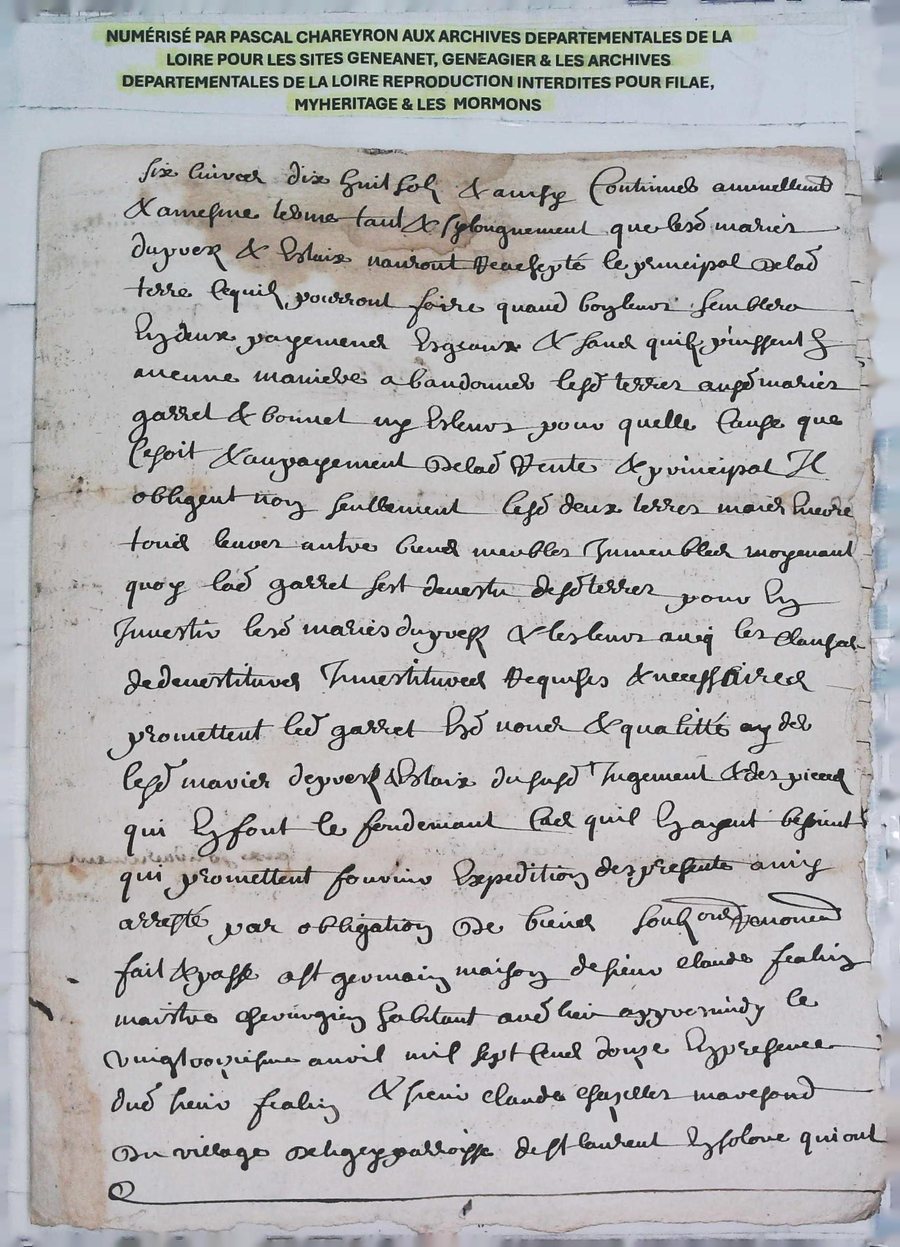 NUMÉRISÉ PAR PASCAL CHAREYRON AUX ARCHIVES DEPARTEMENTALES DE LA
LOIRE POUR LES SITES GENEANET, GENEAGIER & LES ARCHIVES
DEPARTEMENTALES DE LA LOIRE REPRODUCTION INTERDITES POUR FILAE,
MYHERITAGE & LES MORMONS
six livres dix huit solz & ainsy continuer annuellement
& a mesme terme tant & sy longuement que lesd mariés
dupuex & nauront rachepté le principal de lad
terre ce quilz pourront faire quand bon leurs semblera
en deux payemens esgeaux & sans quilz puissent en
aucune maniere abandonner lesd terres ausd mariés
garret & bonnet ny es leurs pour quelle cause que
ce soit & au payement de lad rente & principal Il
obligent non seullement lesd deux terres mais encore
tous leurs autre biens meubles Immeubles moyenant
quoy lad garret sest devestu desd terres pour en
Investir lesd mariés dupuex & les leurs avec les clauses
de devestitures Investitures requises & necessaires
promettent led garret esd noms & qualittés ayder
lesd mariés depuex & du susd Jugement & des pieces
qui en font le fondemant cas quil en ayent besoint
qui promettent fournir expedition des presente ainsy
arresté par obligation de biens
fait & passé a st germain maison de sieur claude
maistre chirurgien habitant aud lieu apres midy le
avril mil sept cens douze en presence
dud sieur & sieur claude chazelles marchand
du village parroisse de st laurent en solore qui ont